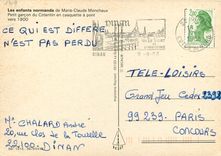 Les enfants normands de Marie-Claude Monchaux
Petit garçon du Cotentin en casquette à pont
vers 1900
CE QUI EST DIFFERE
N'EST PAS PERDU
DINAN
TELE-LOISIRS
Grand Jeu Cedex 2292
99-239-PARIS
CONCOURS
Mr CHALARD André
20, rue Clos de la Tourelle
22100-DINAN